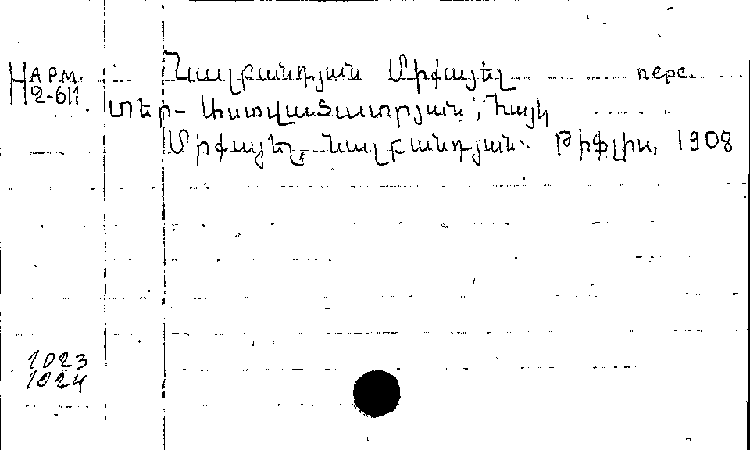 Нарм. Նալբանդյան Միքայել перс.
2-611.
Տեր-Աստվածատրյան, Հայկ
Միքայել Նալբանդյան. Թիֆլիս, 1908
1023
1024